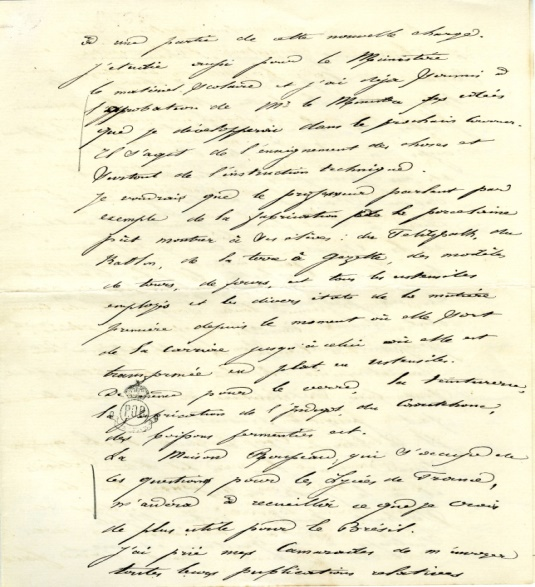 d'une partie de cette nouvelle charge.
J'étudie aussi pour le Ministère
le matériel scolaire et j'ai déjà soumis à
l'approbation de Mr le Ministre des idées
que je développerai dans le prochain courrier.
Il s'agit de l'enseignement des choses et
surtout de l'instruction technique.
Je voudrais que le professeur parlant par
exemple de la fabrication de la porcelaine
pût montrer à ses élèves: du Feldspath, du
Kaolin, de la terre à gazette, des modèles
de tours, de fours, et tous les ustensiles
employés et les divers états de la matière
première depuis le moment où elle sort
de la carrière jusqu'à celui où elle est
transformée en plat, en ustensile.
De même pour le verre, la teinturerie,
la fabrication de l'indigo, du Caoutchouc,
des boissons fermentées etc.
La Maison qui s'occupe de
ces questions pour les Lycées de France,
m'aidera à recueillir ce que je crois
de plus utile pour le Brésil.
J'ai prié mes Camarades de m'envoyer
toutes leurs publications relatives
P.O.B.